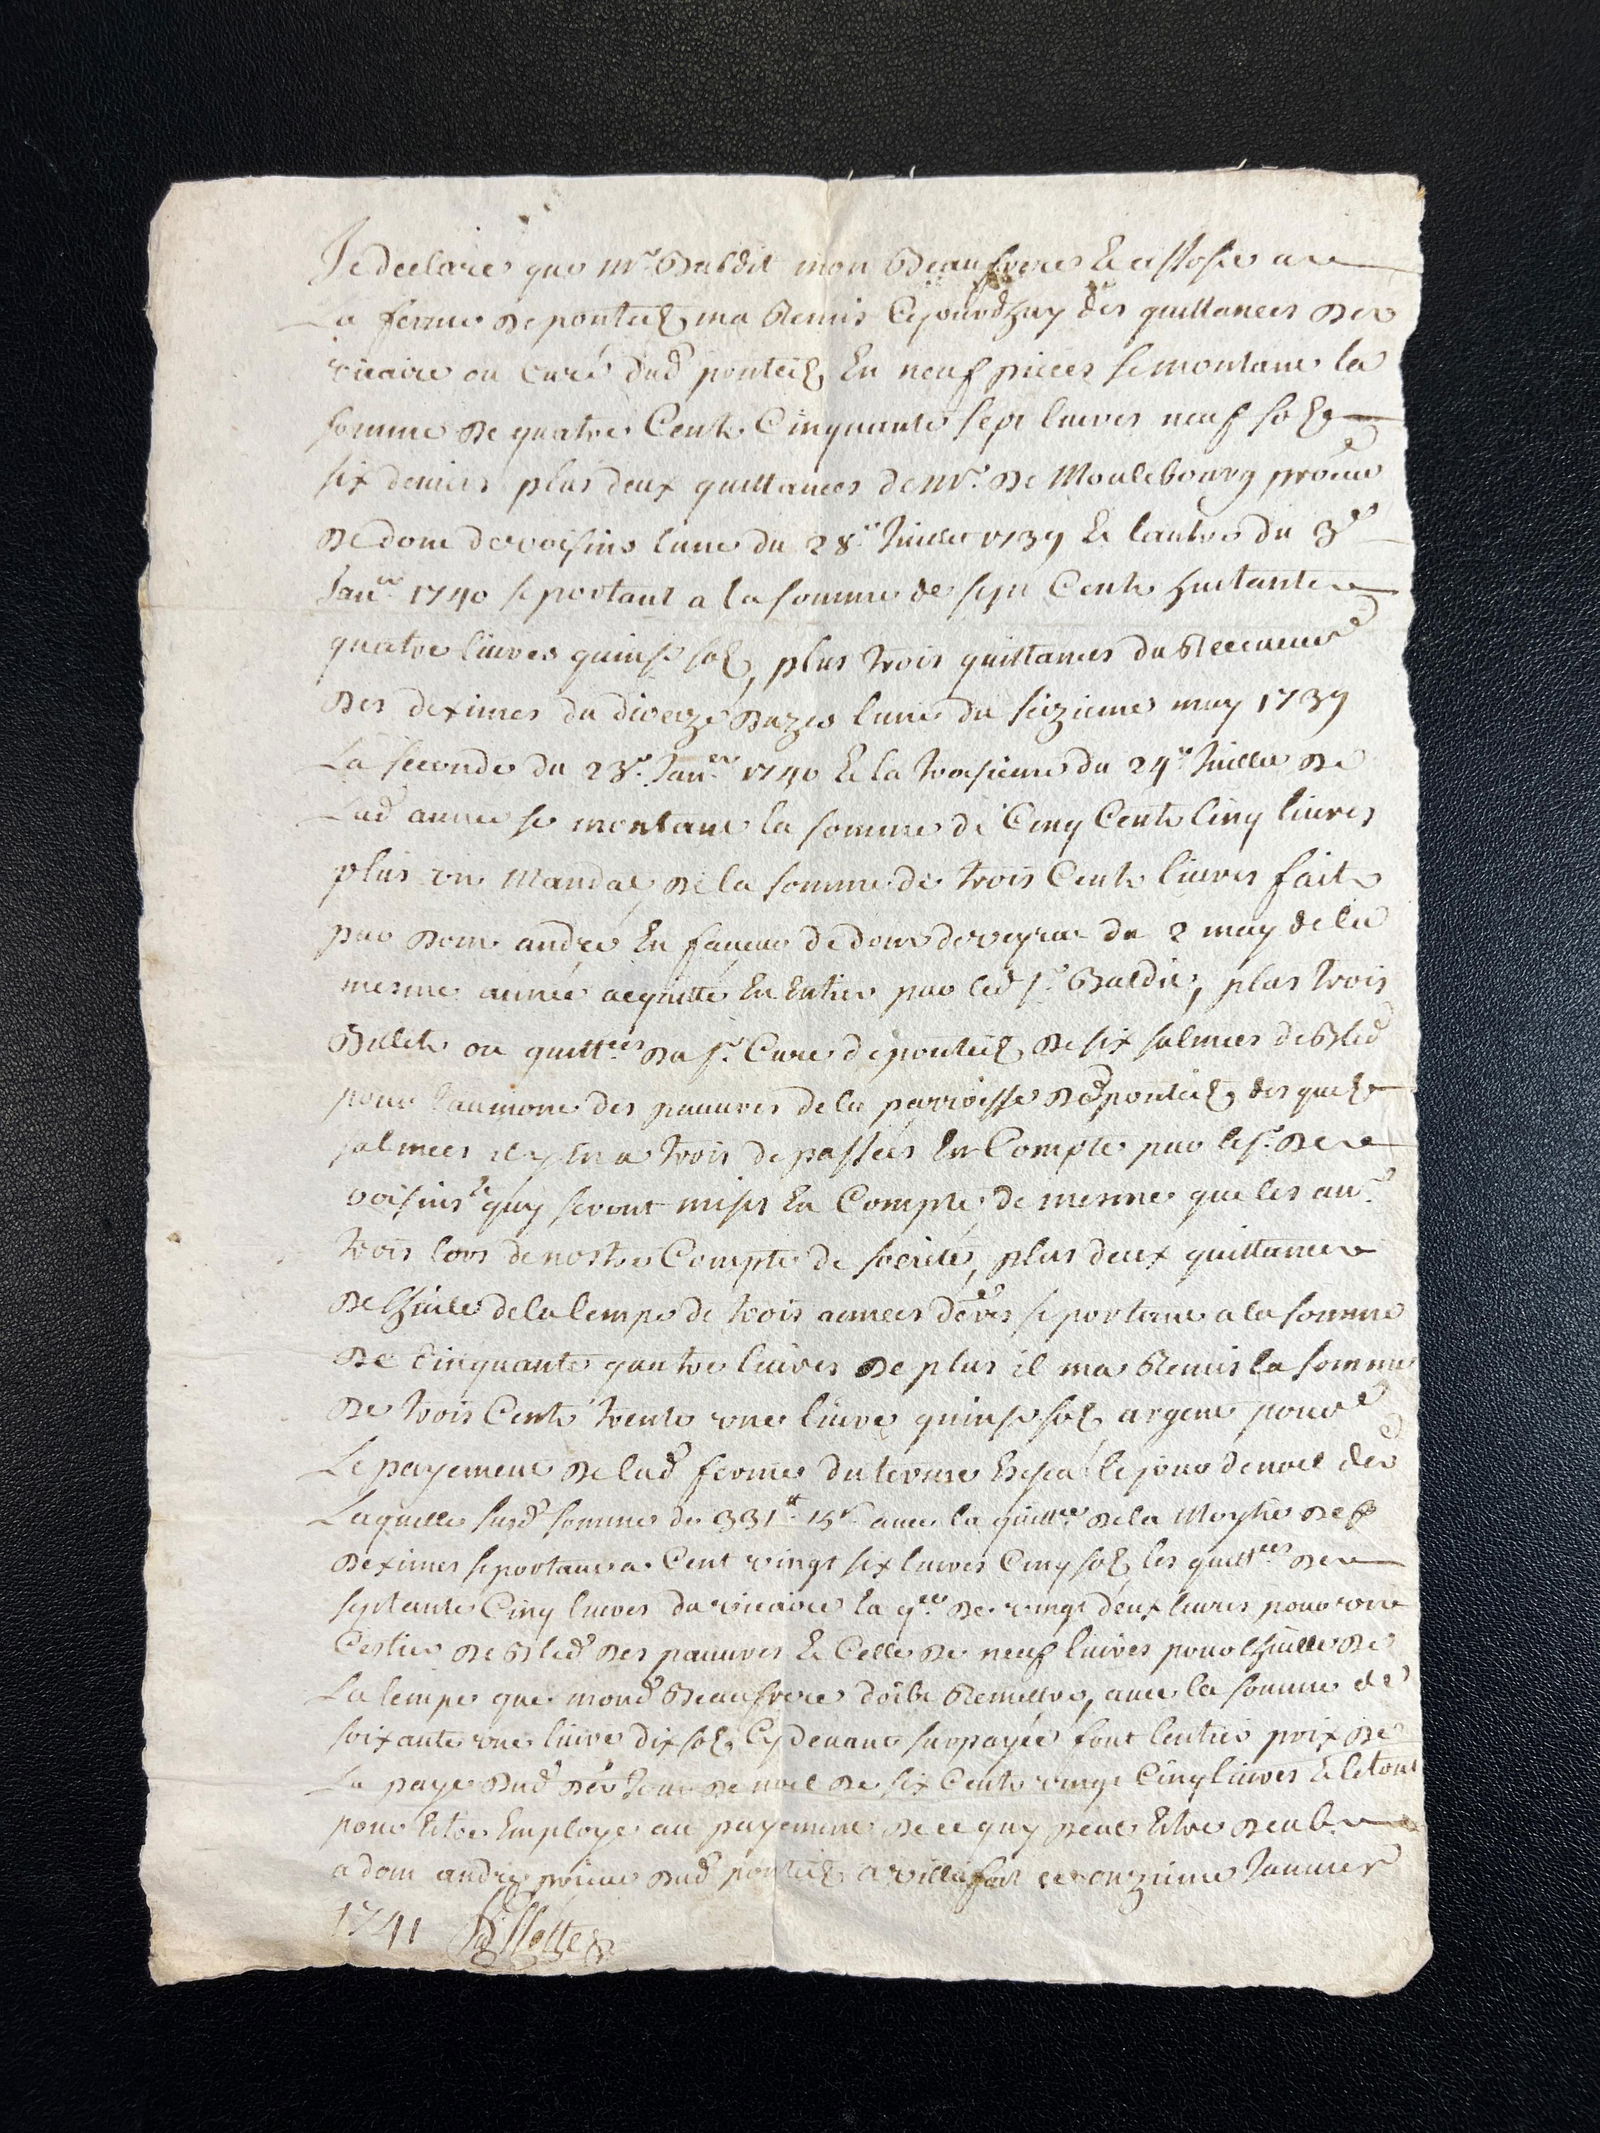 Je declare que mr. Baldit mon Beaufrere & assossie a
La ferme de ponteilz ma Remis Cejourdhuy des quittances de
vicaire ou curé dud ponteilz En neuf pieces se montant la
somme de quatre Cents Cinquante sept livres neuf solz
six deniers plus deux quittances de Mr. De Moulebourg
De dom de voisins lune du 28e Juillet 1739 & lautre du 3e
Janer 1740 se portant a la somme de sept Cents huitante
quatre livres quinse solz, plus trois quittances du Receveur
des deximes du dioceze duzes lune du seizieme may 1739
La seconde du 23e Janer 1740 & la troisieme du 24e Juillet de
Lad année se montant la somme de Cinq Cents Cinq livres
plus un Mandat de la somme de trois Cents livres fait
par dom andre En faveur de dom de veyrac du 2 may de la
mesme année acquitté En Entier par led sr. Baldit, plus trois
Billets ou quittces du sr. Cure de ponteilz de six salmees de Bled
pour laumone des pauvres de la parroisse ded ponteilz desquels
salmees il y En a trois de passées En Compte par le sr. de
voisins & quy seront mises En Compte de mesme que les au.
trois lors de nostre Compte de societé, plus deux quittances
de lhuile de la lempe de trois annees se portant a la somme
de Cinquante quatre livres de plus il ma Remis la somme
de trois Cents trente une livre quinse solz argent pour
Le payement de lad ferme du terme Escheu le jour de noel
Laquelle susd somme de 331tt 15s avec la quittce de la Moytié des
deximes se portant a Cent vingt six livres Cinq solz les quittces de
septante Cinq livres du vicaire la qce de vingt deux livres pour
de Bled des pauvres & Celle de neuf livres pour lhuille de
La lempe que mond Beaufrere doibt Remettre, avec la somme de
soixante une livre dix solz Cy devant surpayée font lentier prix de
La paye dud Jour de noel de six Cents vingt Cinq livres & le tout
pour Estre Employé au payement de ce quy peut Estre deub
a dom andre prieur dud ponteilz a villefort ce onzieme Janvier
1741